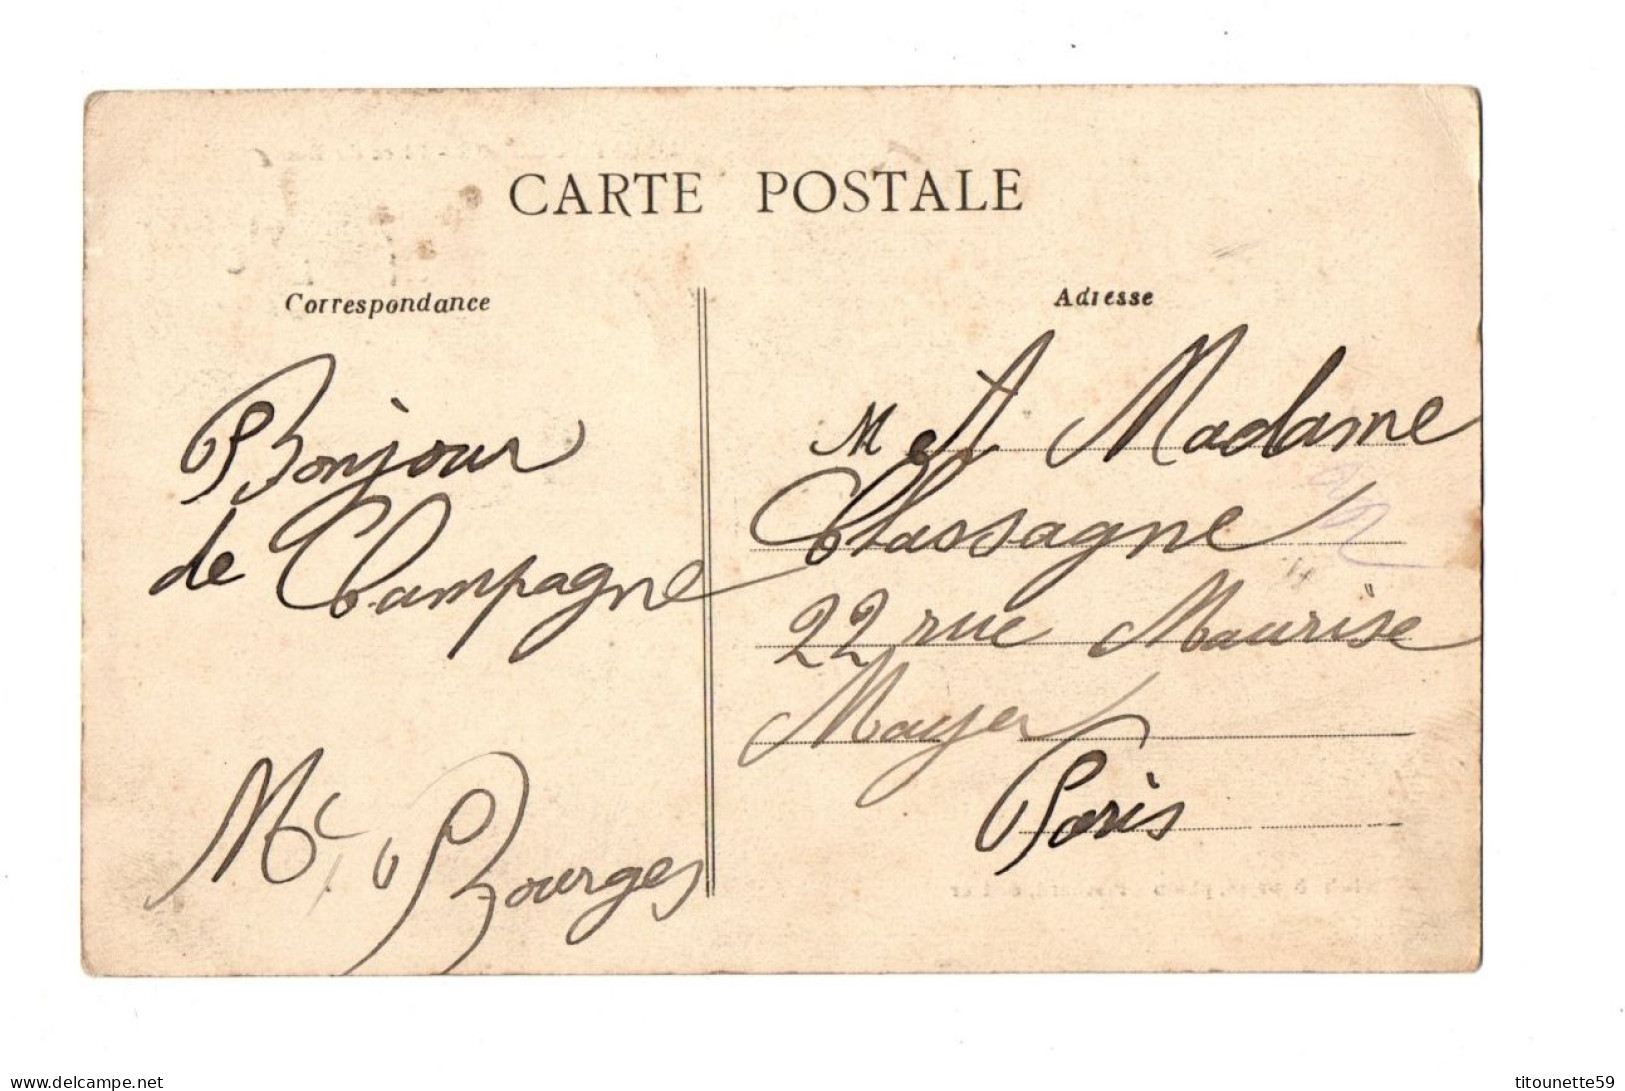 CARTE POSTALE
Correspondance
Adresse
Bonjour
de Campagne
Mc Bourges
M et Madame
Chassagne
22 rue Maurise
Mayer
Paris
www.delcampe.net
titounette59